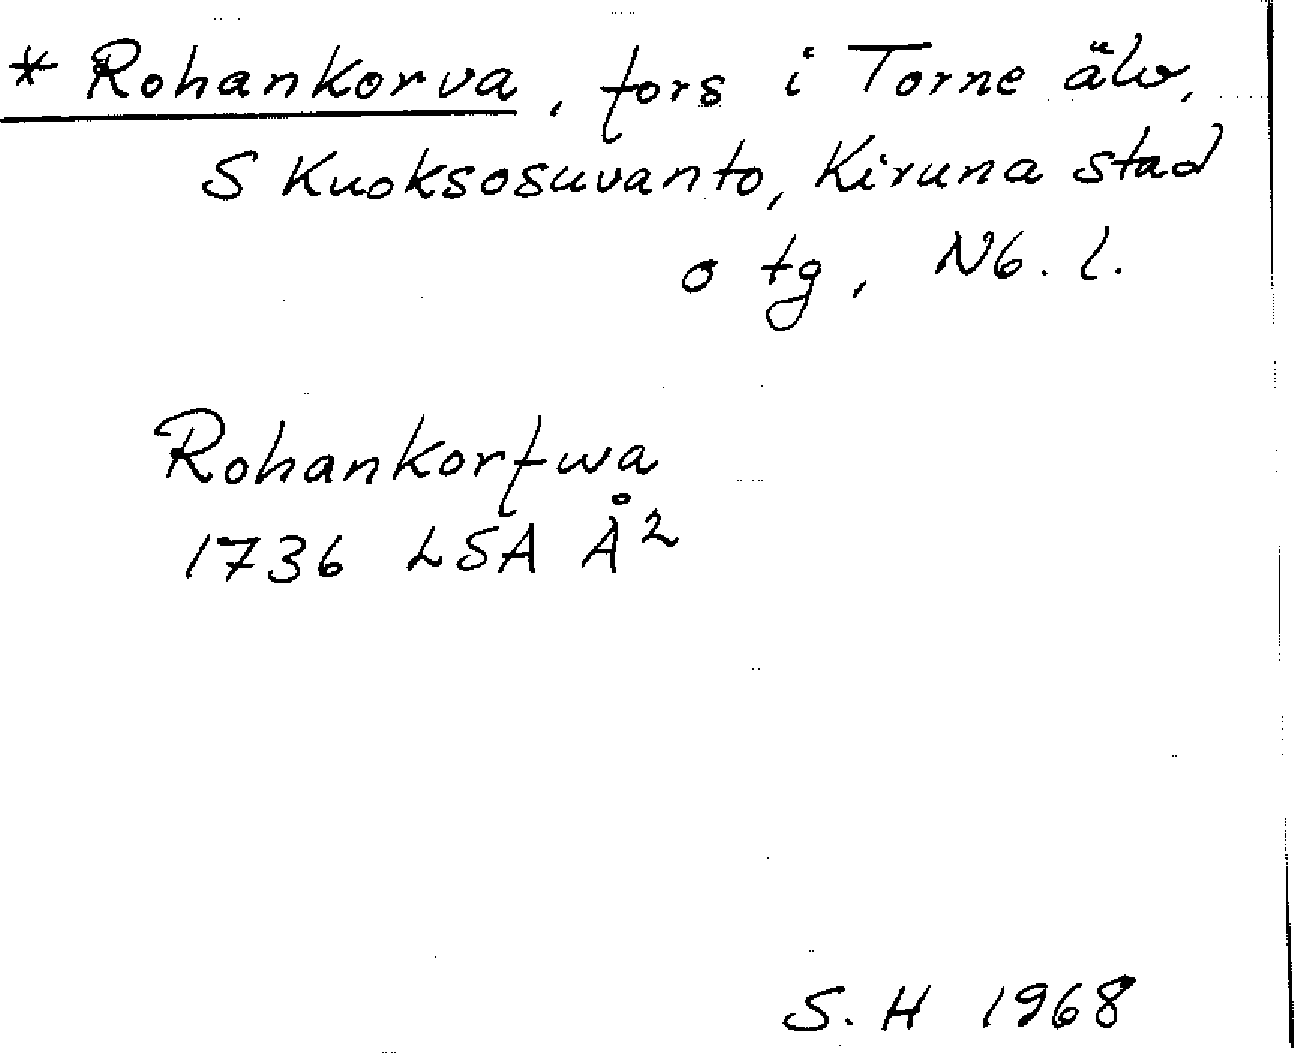 * Rohankorva, fors i Torne älv,
S Kuoksosuvanto, Kiruna stad
o tg, Nb. l.
Rohankorfwa
1736 LSA Å2
S. H 1968